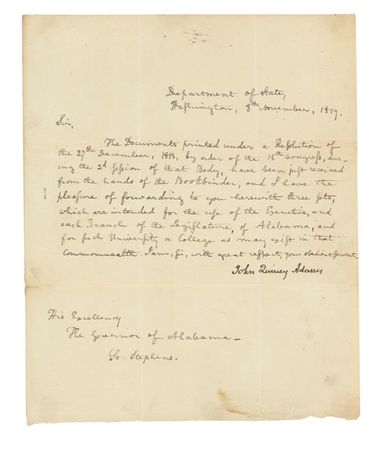 Department of State,
Washington, 8th November, 1819.
Sir,
The Documents printed under a Resolution of
the 27th December, 1818, by order of the 15th Congress, dur-
ing the 2d Session of that Body, have been just received
from the hands of the Bookbinder, and I have the
pleasure of forwarding to you herewith three sets,
which are intended for the use of the Executive, and
each Branch of the Legislature, of Alabama, and
for such University or College as may exist in that
Commonwealth. I am, Sir, with great respect, your obedient Servant
John Quincy Adams
His Excellency
The Governor of Alabama—
St. Stephens.